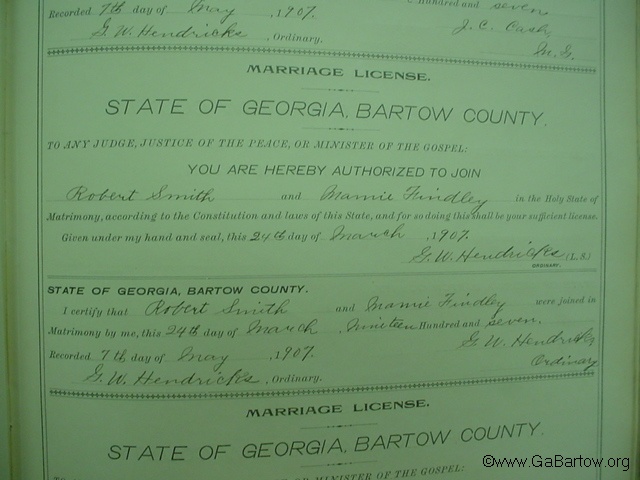 Hundred and seven
Recorded 7th day of May, 1907.
J. C. Cash,
G. W. Hendricks, Ordinary.
M. G.
MARRIAGE LICENSE.
STATE OF GEORGIA, BARTOW COUNTY.
TO ANY JUDGE, JUSTICE OF THE PEACE, OR MINISTER OF THE GOSPEL:
YOU ARE HEREBY AUTHORIZED TO JOIN
Robert Smith and Mamie Findley in the Holy State of
Matrimony, according to the Constitution and laws of this State, and for so doing this shall be your sufficient license.
Given under my hand and seal, this 24th day of March, 1907.
G. W. Hendricks (L. S.)
ORDINARY.
STATE OF GEORGIA, BARTOW COUNTY.
I certify that Robert Smith and Mamie Findley were joined in
Matrimony by me, this 24th day of March, Nineteen Hundred and seven.
G. W. Hendricks
Recorded 7th day of May, 1907.
Ordinary
G. W. Hendricks, Ordinary.
MARRIAGE LICENSE.
STATE OF GEORGIA, BARTOW COUNTY.
OR MINISTER OF THE GOSPEL:
©www.GaBartow.org